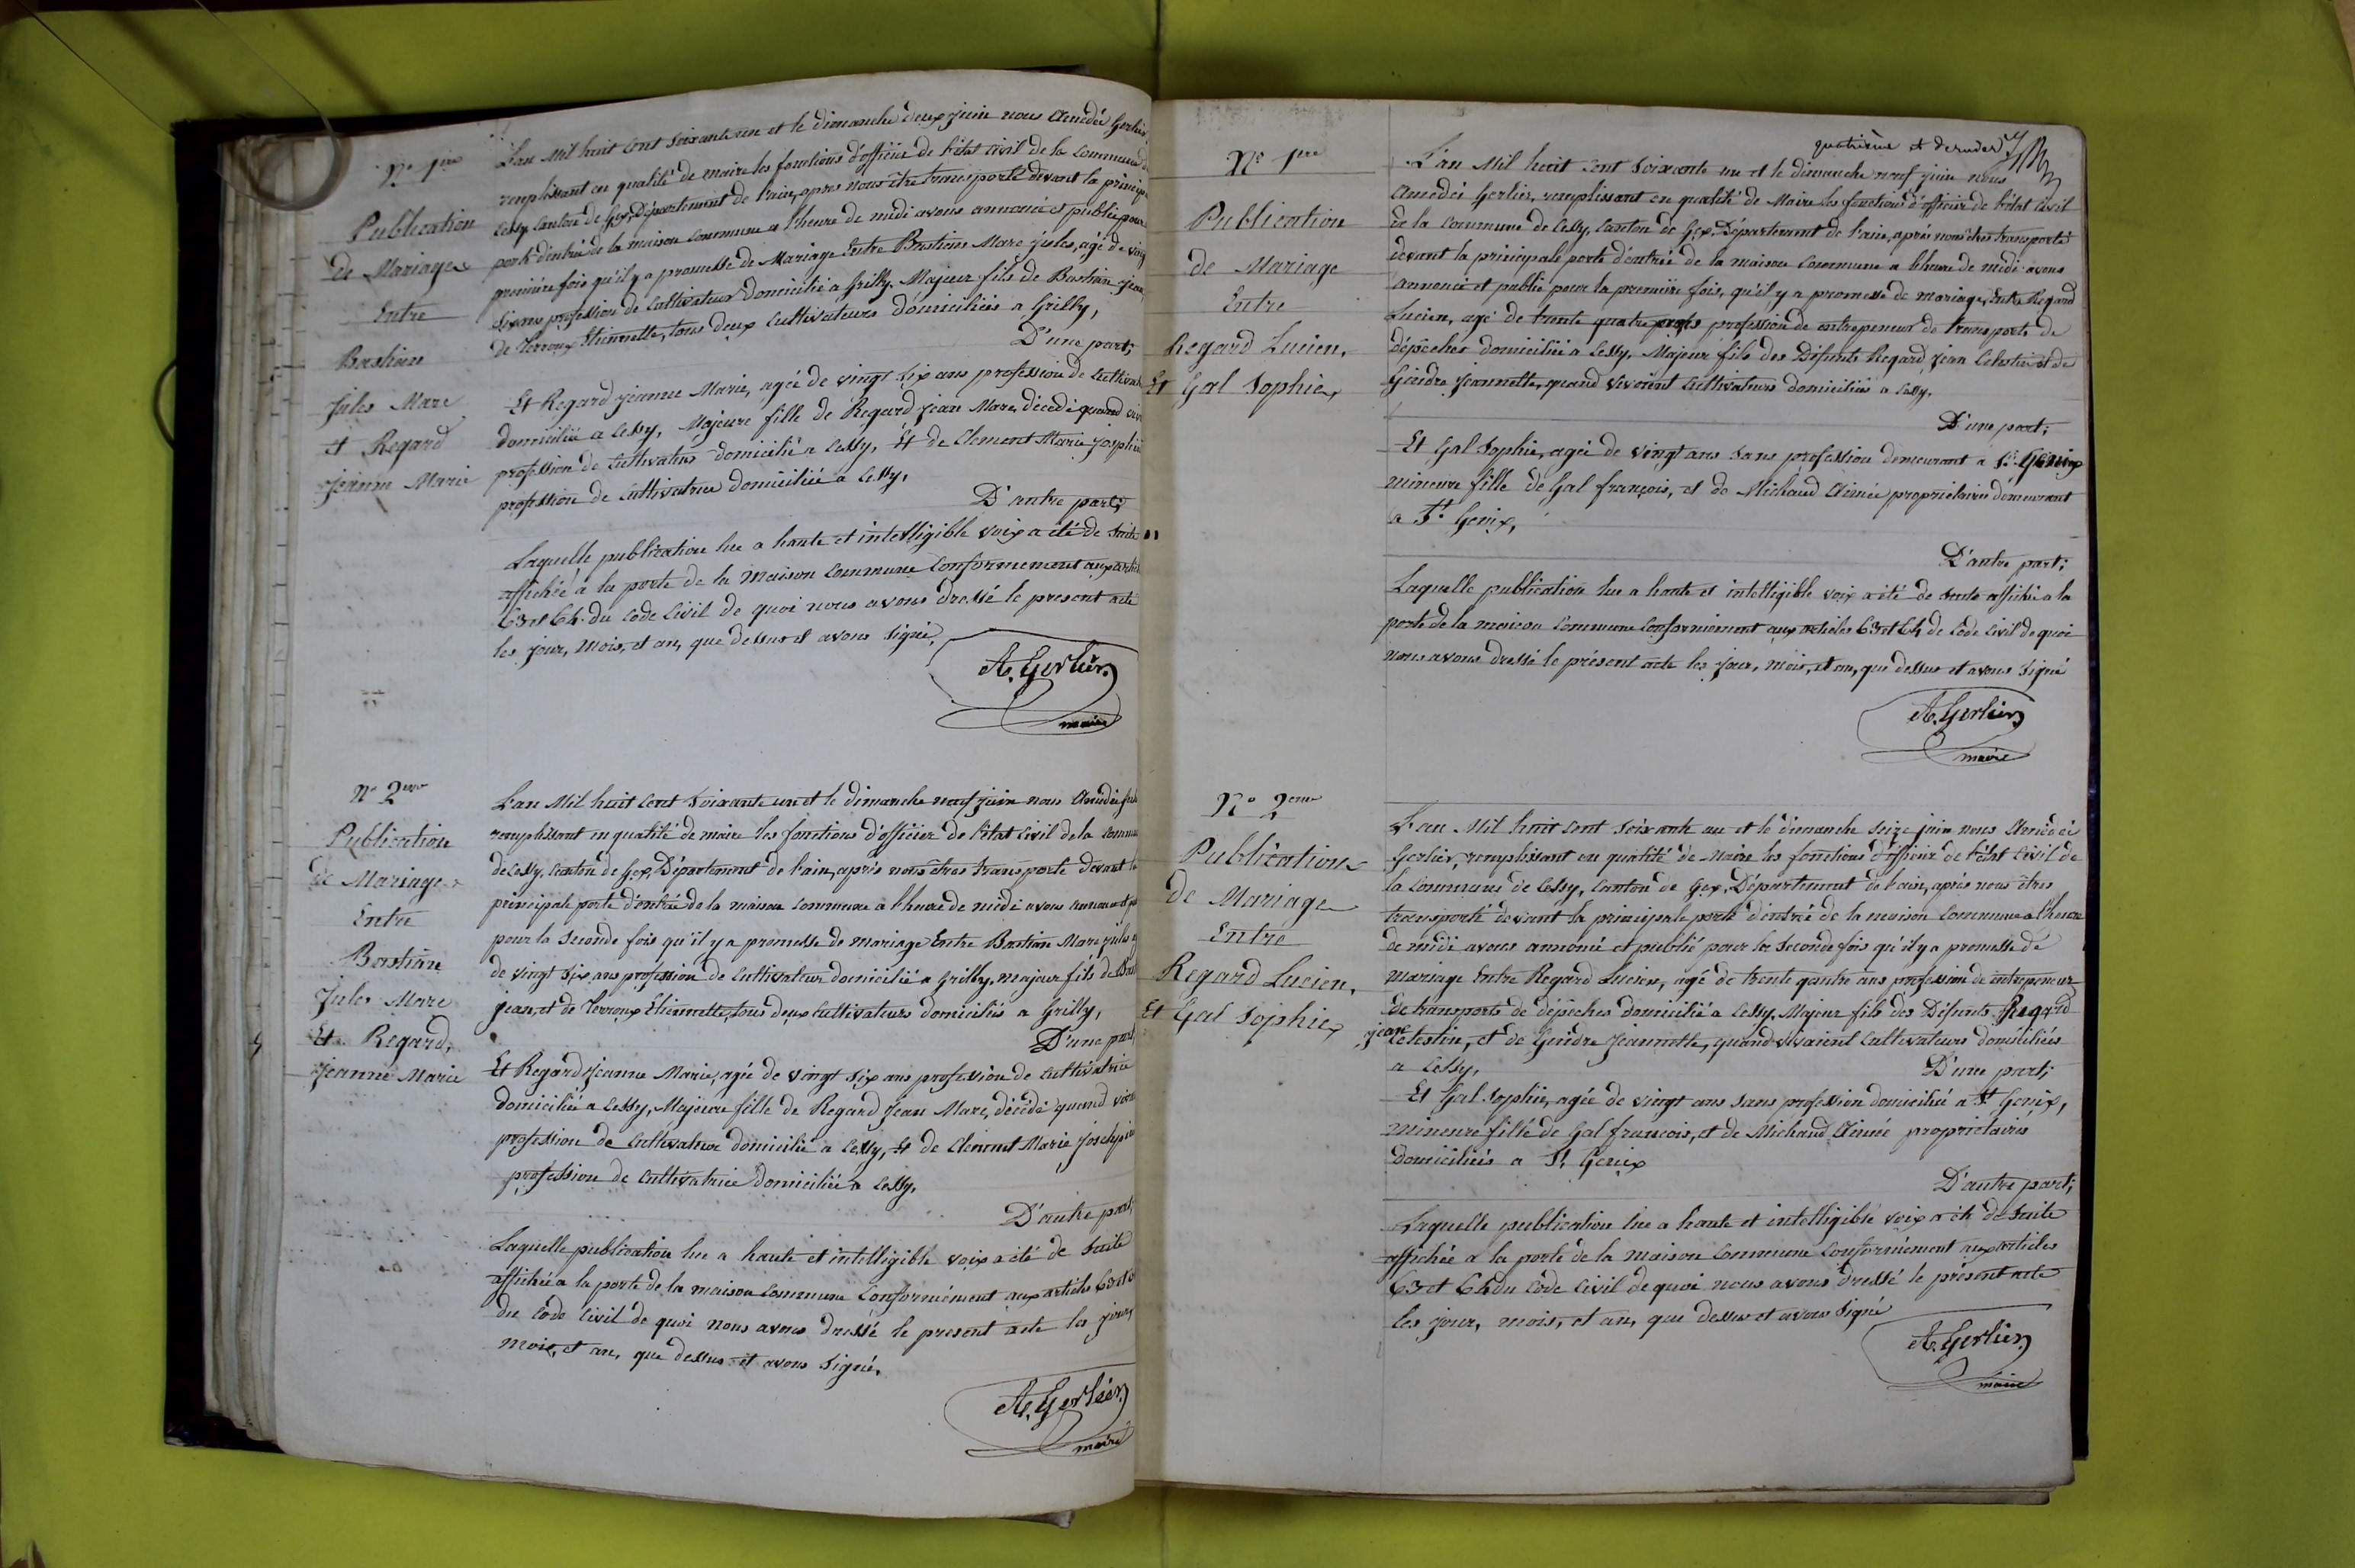 N° 1ère
Publication
de Mariages
Entre
Bastian
Jules Marc
et Regard
Jeanne Marie
L'an Mil huit cent soixante un et le dimanche deux juin nous Amédée Gerlier
remplissant en qualité de maire les fonctions d'officier de l'état civil de la commune de
Cessy canton de Gex, Département de l'ain, apres nous être transporté devant la principale
porte d'entrée de la maison commune a l'heure de midi avons annoncé et publié pour
première fois qu'il y a promesse de Mariage Entre Bastian Marc jules, agé de ving
six ans profession de Cultivateur domicilié a Grilly. Majeur fils de Bastian jean,
de Verroux Etiennette, tous deux cultivateurs domiciliés a Grilly,
D'une part;
Et Regard jeanne Marie, agée de vingt six ans profession de Cultivat
domiciliée a Cessy, Majeure fille de Regard jean Marc, décédé quand viv
profession de Cultivateur domicilié a Cessy, Et de Clement Marie josephine
profession de Cultivatrice domiciliée a Cessy,
D'autre part;
Laquelle publication lue a haute et intelligible voix a été de suite
affichée à la porte de la Maison commune Conformement aux articles
63 et 64 du Code Civil de quoi nous avons dressé le present acte
les jour, mois, et an, que dessus et avons signé,
A. Gerlier
maire
N° 2me
Publication
de Mariages
Entre
Bastian
Jules Marc
Et Regard,
Jeanne Marie
L'an Mil huit cent soixante un et le dimanche neuf juin nous Amédée
remplissant en qualité de maire les fonctions d'officier de l'état civil de la commu
de Cessy, Canton de Gex, Département de l'ain, après nous êtres transporté devant la
principale porte d'entrée de la maison commune a l'heure de midi avons annoncé et
pour la Seconde fois qu'il y a promesse de mariage Entre Bastian Marc jules
de vingt six ans profession de Cultivateur domicilié a Grilly, majeur fils de Bast
jean, et de Verroux Etiennette, tous deux Cultivateurs domiciliés a Grilly,
D'une part,
Et Regard Jeanne Marie, agée de vingt six ans profession de Cultivatrice
domiciliée a Cessy, Majeure fille de Regard Jean Marc, décédé quand viva
profession de Cultivateur domicilié a Cessy, Et de Clement Marie josephine
profession de Cultivatrice domiciliée a Cessy,
D'autre part,
Laquelle publication lue a haute et intelligible voix a été de suite
affichée a la porte de la maison commune Conformément aux articles 63 et
du Code Civil de quoi nous avons dressé le present acte les jour,
mois, et an, que dessus et avons signé,
A. Gerlier
maire
quatrième et dernier
N° 1ère
Publication
de Mariage
Entre
Regard Lucien,
Et Gal Sophie,
L'an Mil huit cent soixante un et le dimanche neuf juin nous
Amédéé Gerlier, remplissant en qualité de Maire les fonctions d'officier de l'état Civil
de la Commune de Cessy, Canton de Gex, Département de l'ain, après nous êtres transporté
devant la principale porte d'entrée de la maison commune a l'heure de midi avons
annoncé et publié pour la première fois, qu'il y a promesse de mariage, Entre Regard
Lucien, agé de trente quatre profession de entrepeneur de transports de
dépêches domicilié a Cessy, Majeur fils des Défunts Regard Jean Celestin et de
Gindre Jeannette, quand vivoient Cultivateurs domiciliés a Cessy,
D'une part;
Et Gal Sophie, agée de vingt ans sans profession demeurant a St. Genix
mineure fille de Gal françois, et de Michaud Aimée propriétaires demeurant
a St. Genix,
D'autre part;
Laquelle publication lue a haute et intelligible voix a été de suite affichée a la
porte de la maison commune Conformément aux articles 63 et 64 de Code Civil de quoi
nous avons dressé le présent acte les jour, mois, et an, que dessus et avons signé
A. Gerlier
maire
N° 2eme
Publication
de Mariage
Entre
Regard Lucien,
Et Gal Sophie,
L'an Mil huit cent soixante un et le dimanche seize juin nous Amédéé
Gerlier, remplissant en qualité de Maire les fonctions d'officier de l'état Civil de
la Commune de Cessy, Canton de Gex, Département de l'ain, après nous êtres
transporté devant la principale porte d'entrée de la maison commune a l'heure
de midi avons annoncé et publié pour la Seconde fois qu'il y a promesse de
mariage Entre Regard Lucien, agé de trente quatre ans profession de entrepeneur
de transports de dépêches domicilié a Cessy, Majeur fils des Défunts Regard
jean Celestin, et de Gindre Jeannette, quand vivaient Cultivateurs domiciliés
a Cessy,
D'une part;
Et Gal Sophie, agée de vingt ans sans profession domiciliée a St Genix,
mineure fille de Gal francois, et de Michaud Aimée propriétaires
domiciliés a St Genix
D'autre part;
Laquelle publication lue a haute et intelligible voix a été de suite
affichée a la porte de la maison commune Conformément aux articles
63 et 64 du Code Civil de quoi nous avons dressé le présent acte
les jour, mois, et an, que dessus et avons signé
A. Gerlier
maire